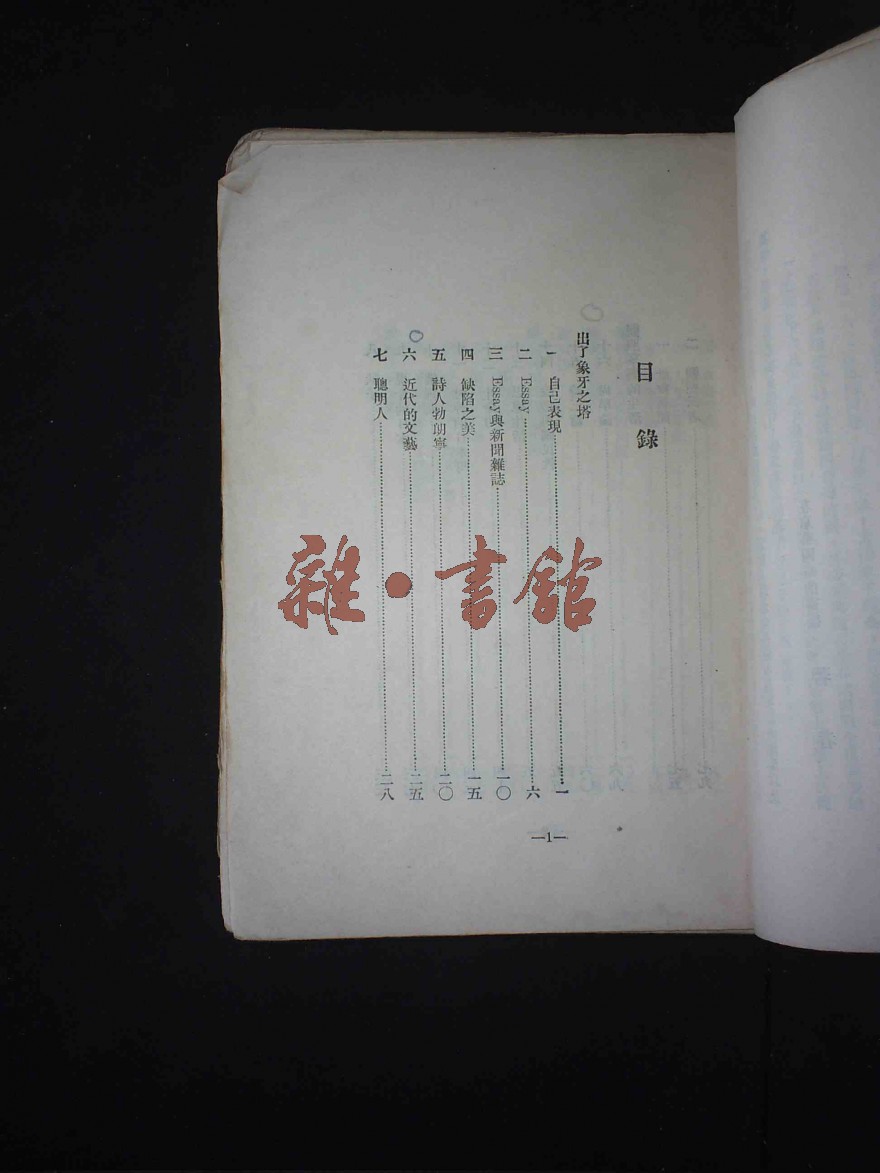 目錄
出了象牙之塔
一 自己表現……一
二 Essay……六
三 Essay與新聞雜誌……一〇
四 缺陷之美……一五
五 詩人勃朗寧……二〇
六 近代的文藝……二五
七 聰明人……二八
—1—
雜·書館